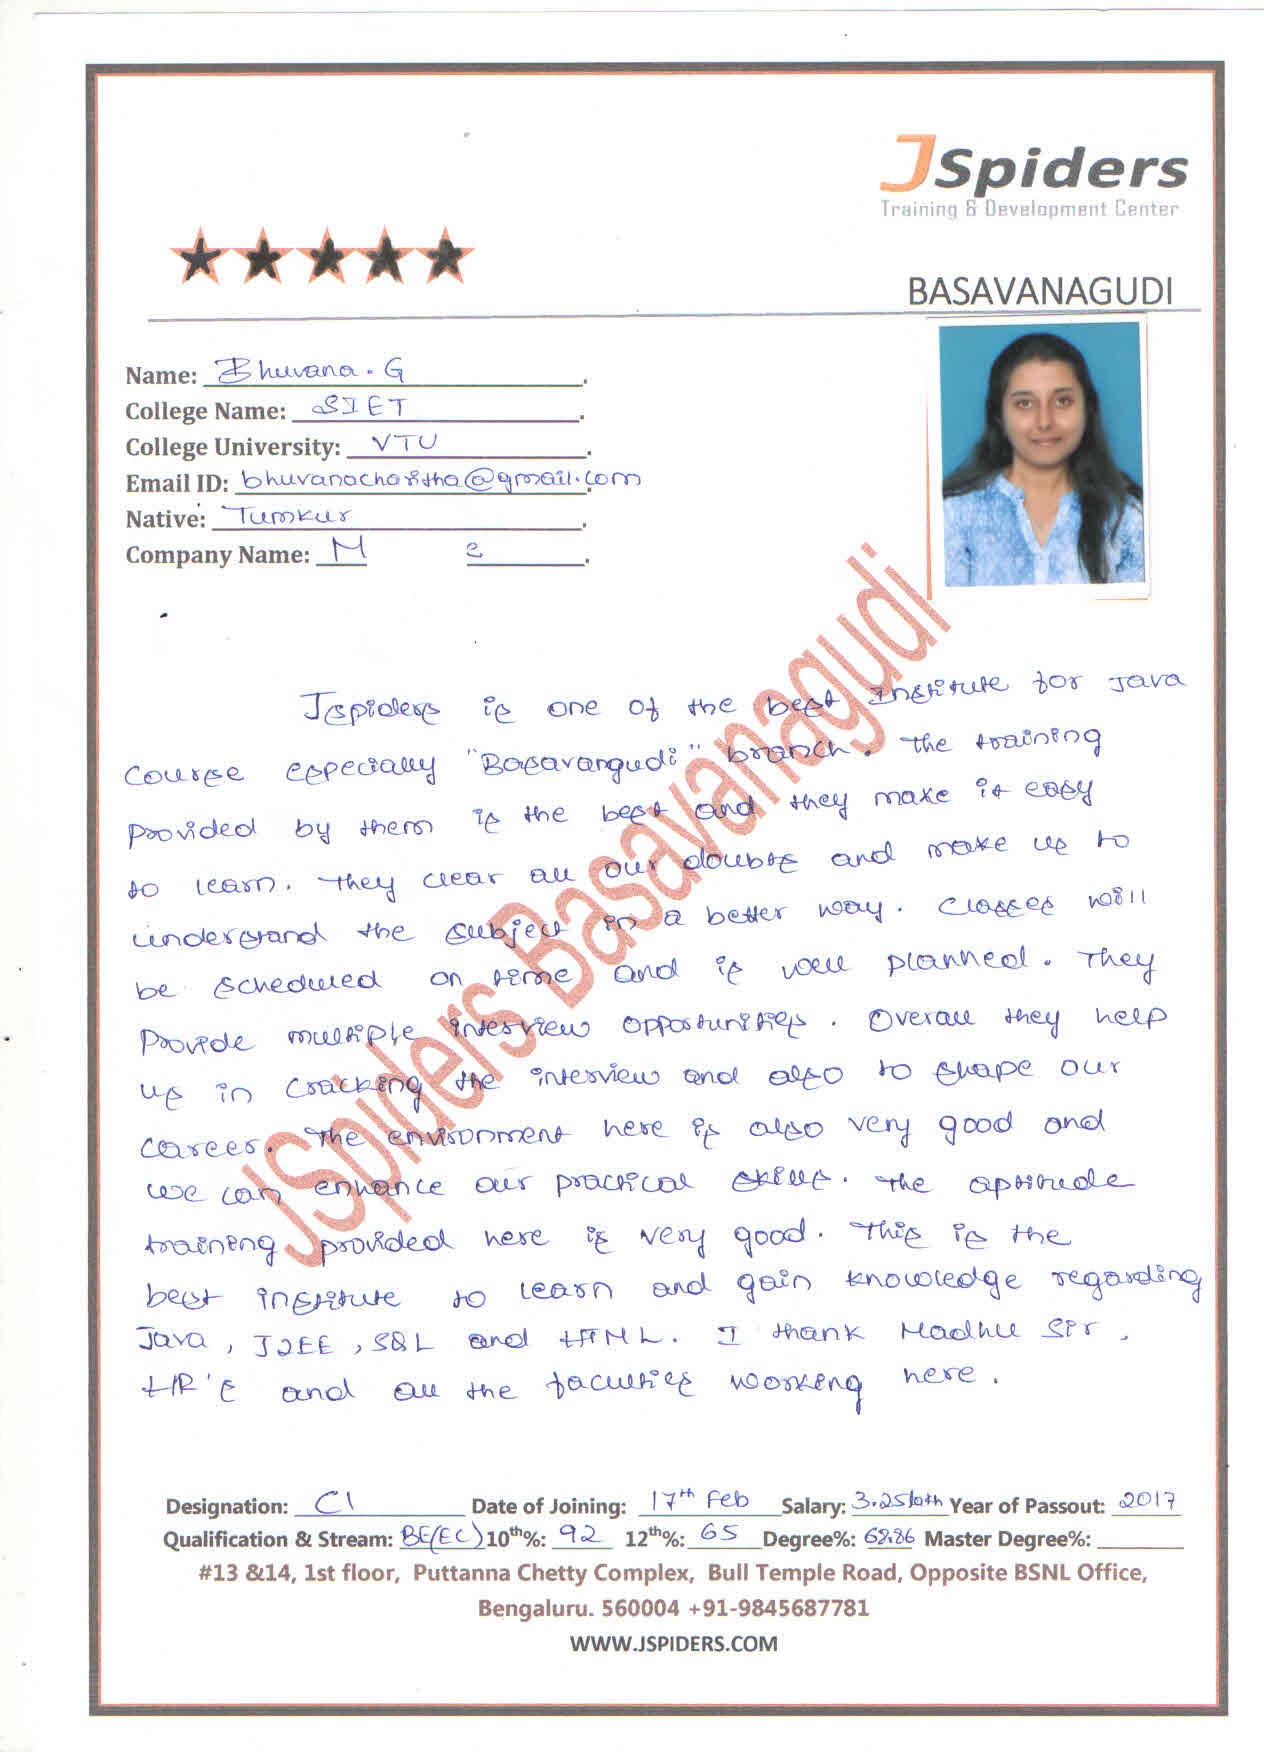 JSpiders
Training & Development Center
BASAVANAGUDI
Name: Bhuvana.G.
College Name: SIET.
College University: VTU.
Email ID: bhuvanacharitha@gmail.com
Native: Tumkur.
Company Name: M e.
Jspiders is one of the best Institute for Java
Course especially "Basavangudi" branch. The training
Provided by them is the best and they make it easy
to learn. They clear all our doubts and make us to
understand the subject in a better way. Classes will
be scheduled on time and is well planned. They
Provide multiple interview opportunities. Overall they help
us in cracking the interview and also to shape our
career. The environment here is also very good and
we can enhance our practical skills. The aptitude
training provided here is very good. This is the
best institute to learn and gain knowledge regarding
Java, J2EE, SQL and HTML. I thank Madhu Sir,
HR's and all the faculties working here.
JSpiders Basavanagudi
Designation: CI Date of Joining: 17th Feb Salary: 3.25 Year of Passout: 2017
Qualification & Stream: BE(EC) 10th%: 92 12th%: 65 Degree%: 68.86 Master Degree%:
#13 &14, 1st floor, Puttanna Chetty Complex, Bull Temple Road, Opposite BSNL Office,
Bengaluru. 560004 +91-9845687781
WWW.JSPIDERS.COM